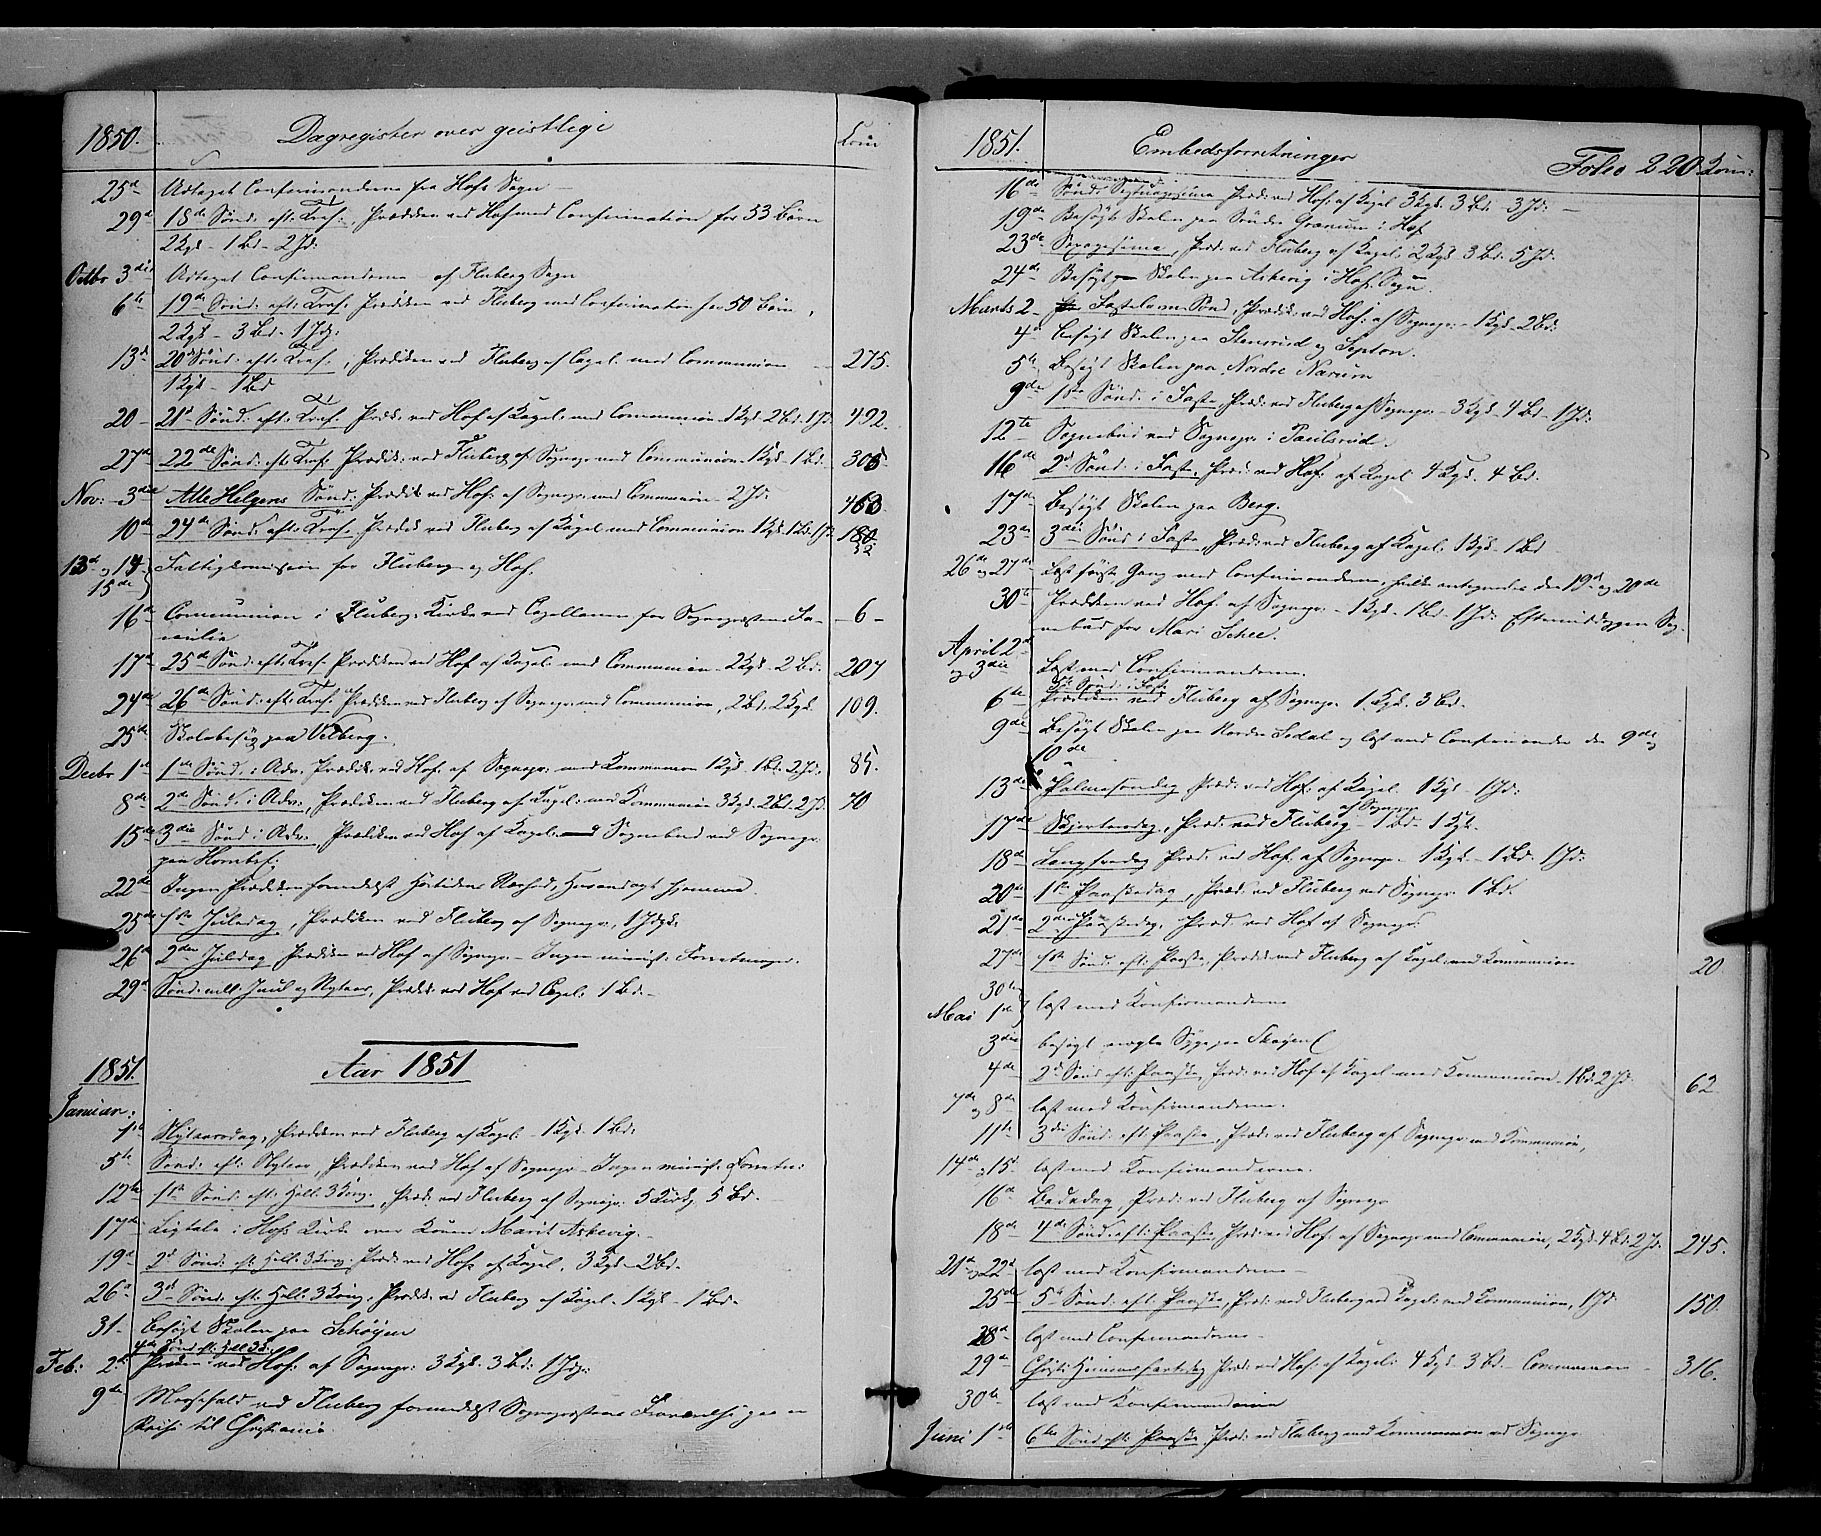 1850. Dagregister over geistlige Com
25de Antaget Confirmanderne fra Hofs Sogn
29de 18de Sønd: eft: Tref:, Prædiken ved Hof med Confirmation for 53 Børn
2 Kgk - 1 Bd - 2 Jd:
Octbr 3die Antaget Confirmanderne af Fluberg Sogn
6te 19de Sønd: eft: Tref: Prædiken ved Fluberg med Confirmation for 50 Børn,
2 Kgk - 3 Bd - 1 Jd:
13de 20de Sønd: eft: Tref:, Prædiken ved Fluberg af Capel: med Communion 275.
1 Kgk - 1 Bd
20 21de Sønd: eft: Tref: Prædk: ved Hof af Kapel: med Communion 1 Kgk 2 Bd. 1 Jd 492.
27de 22de Sønd: eft: Tref: Prædik: ved Fluberg af Sognepr: med Communion 1 Kgk 1 Bd. 305
Nov: 3die Alle Helgens Sønd: Prædik ved Hof: af Sognepr: med Communion - 2 Jd: 463.
10de 24de Sønd: eft: Tref: Prædik ved Fluberg af Kapel med Communion 1 Kgk 1 Bd. 1 Jd 180
13de og 14 Fattigkomission for Fluberg og Hof.
15de
16de Communion i Fluberg Kirke ved Capellanen for Sognepræstens Fa- - 6 -
milie
17de 25de Sønd: eft: Tref: Prædiken ved Hof af Kapel: med Communion 2 Kgk - 2 Bd. 207
24de 26de Sønd: eft: Tref: Prædiken ved Fluberg af Sognepr: med Communion, 2 Bd. 2 Kgk. 109.
25de Skolebesøg paa Velberg.
Decbr 1de 1ste Sønd: i Adv: Prædik: ved Hof: af Sognepr: med Kommunion 1 Kgk. 1 Bd. 2 Jd: 85.
8de 2de Sønd: i Adv:, Prædiken ved Fluberg af Kapel: med Kommunion 3 Kgk. 2 Bd. 2 Jd. 70
15de 3die Sønd: i Adv: Prædiken ved Hof af Kapel: Sognebud ved Sognepr:
paa
22de Ingen Prædiken formedelst Høitidens Nærhed,
25de 1ste Juledag, Prædiken ved Fluberg af Sognepr:, 1 Jdgk:
26de 2den Juledag Prædiken ved Hof af Sognepr: - Ingen minist: Forretninger.
29de Sønd: mell: Juul og Nytaar, Prædik: ved Hof ved Capel: 1 Bd.
1851. Aar 1851
Januar:
1ste Nytaarsdag, Prædiken ved Fluberg af Kapel: - 1 Kgk. 1 Bd:
5te Sønd: eft: Nytaar, Prædiken ved Hof af Sognepr - Ingen minist: Forretn:
12te 1ste Sønd: eft: Hell: 3 Kong:, Præd: ved Fluberg af Sognepr: 5 Kirkg. 5 Bd.
17de Ligtale i Hofs Kirke over Konen Marit Askevig.
19de 2de Sønd: eft: Hell: 3 Kong: Præd: ved Hofs af Kapel. 3 Kgk - 2 Bd.
26de 3de Sønd: eft: Hell: 3 Kong: Prædik: ved Fluberg af Kapel. 1 Kgk - 1 Bd.
31. Besøgt Skolen paa Schøyen
4de Sønd: eft: Hell: 3 K:
Feb: 2de Præken ved Hof: af Sognepr: 3 Kgk. 3 Bd. 1 Jdg:
9de Messefald ved Fluberg formedelst Sognepræstens Fraværelse paa en
Reise til Christiania
1851. Embedsforretninger Folio 220 Kom:
16de Sønd: Septuagesima Præd: ved Hof: af Kapel 3 Kgk. 3 Bd. 3 Jd: -
19de Besøgt Skolen paa Søndre Granum i Hof
23de Sexagesima, Præd: ved Fluberg af Kapel. 2 Kgk. 3 Bd. 5 Jd.
24de Besøgt Skolen paa Askevig i Hofs Sogn.
Marts 2 Fastelavns Sønd:, Prædik: ved Hof: af Sognepr: - 1 Kgk. 2 Bd:
4de Besøgt Skolen paa Stensrud og Septon.
5te Besøgt Skolen paa Nordre Narum
9de 1ste Sønd: i Faste, Præd: ved Fluberg af Sognepr: - 3 Kgk. 4 Bd. 1 Jd:
12te Sognebud ved Sognepr: i Paulsrud.
16de 2de Sønd: i Faste, Præd: ved Hof: af Kapel 4 Kgk. 4 Bd.
17de Besøgt Skolen paa Berg.
23de 3die Sønd i Faste, Præd: ved Fluberg af Kapel: 1 Kgk. 1 Bd
26de og 27de Læst første Gang med Confirmanderne, hvilke antegnedes den 19de og 20de
30te Prædiken ved Hof: af Sognepr: - 1 Kgk. 1 Bd - 1 Jd: Eftermiddagen Sog-
nebud for Mari Schee.
April 2de
og 3die Læst med Confirmanderne.
5te Sønd: i Faste
6te Prædiken ved Fluberg af Sognepr: 1 Kgk. 3 Bd.
9de Besøgt Skolen paa Nordre Sedal og læst med Confirmander den 9de og
10de
13de Palmesøndag Præd: ved Hof: af Kapel. 1 Kgk - 1 Jd:
af Sognepr
17de Skjertorsdag, Præd: ved Fluberg - 1 Bd. 1 Kgk.
18de Langfredag Præd: ved Hof: af Sognepr. 1 Kgk - 1 Bd. 1 Jd:
20de 1ste Paaskedag, Præd: ved Fluberg ved Sognepr 1 Bd.
21de 2den Paaskedag, Præd: ved Hof af Sognepr:
27de 1ste Sønd: eft: Paaske, Prædik: ved Fluberg af Kapel: med Kommunion 20
30te
Mai 1ste læst med Konfirmanderne
3die besøgt nogle Syge paa Skøyen
4de 2de Sønd: eft: Paaske, Præd: ved Hof af Kapel med Kommunion. 1 Bd. 2 Jd. 62
7de og 8de læst med Konfirmanderne.
11te 3die Sønd: eft: Paaske, Præd: ved Fluberg af Sognepr: med Kommunion,
14de og 15de læst med Konfirmanderne.
16de Bededag, Præd: ved Fluberg af Sognepr
18de 4de Sønd: eft: Paaske, Præd: ved Hof: af Sognepr med Communion, 2 Kgk. 4 Bd. 2 Jd. 245.
21de og 22de læst med Konfirmanderne
25de 5te Sønd: eft: Paaske, Præd: ved Fluberg ved Kapel: med Kommunion, 1 Jd 150.
28de læst med Confirmanderne
29de Christi Himmelfartsdag Præd: ved Hof: af Kapel: 4 Kgk. 3 Bd - Communion 316.
30te læst med Konfirmanderne
Juni 1ste 6te Sønd: eft: Paaske Præd: ved Fluberg med Kommunion ved Sognepr